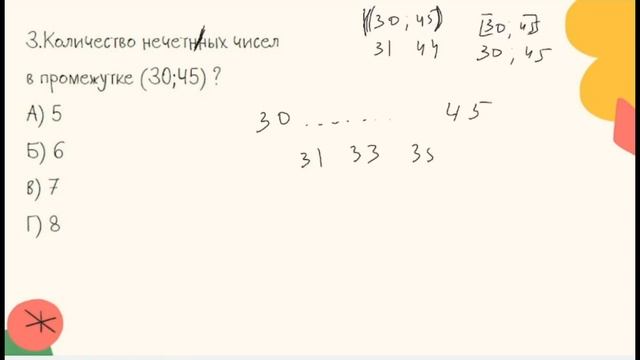 3.Количество нечетных чисел
в промежутке (30;45) ?
А) 5
Б) 6
В) 7
Г) 8
(30; 45)
31 44
[30; 45]
30 ; 45
30 ....... 45
31 33 35